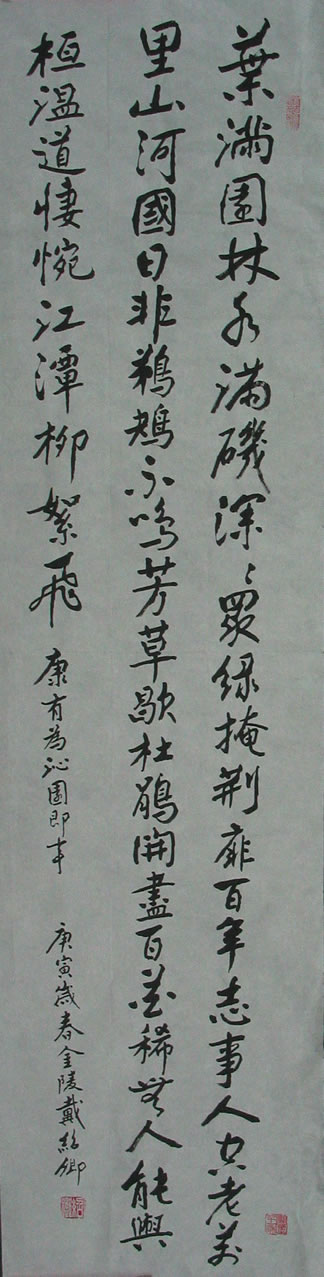 葉滿園林水滿磯深深眾綠掩荆扉百年志事人空老萬
里山河國日非鵜鴂不鳴芳草歇杜鵑開盡百花稀無人能與
桓溫道悽惋江潭柳絮飛
康有為沁園即事
庚寅歲春金陵戴紹卿